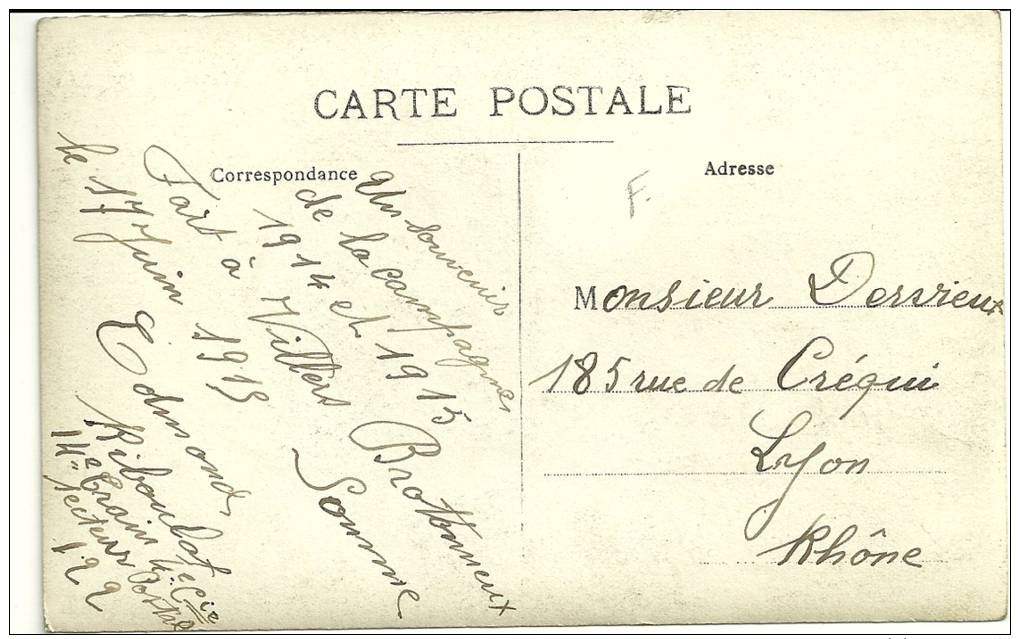 CARTE POSTALE
Correspondance
Un souvenir
de la campagnes
1914 et 1915
Fait à Villers Brotonneux
Somme
le 17 Juin 1915
Edmond
Riboulat
14e Train 4e Cie
Secteur Postal
122
Adresse
F.
Monsieur Dervieux
185 rue de Créqui
Lyon
Rhône